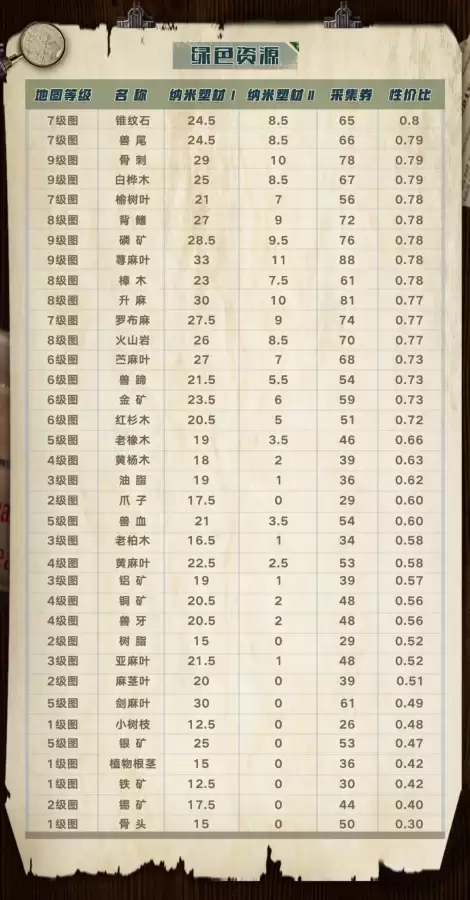 绿色资源
地图等级 名称 纳米塑材 I 纳米塑材 II 采集券 性价比
7级图 锥纹石 24.5 8.5 65 0.8
7级图 兽尾 24.5 8.5 66 0.79
9级图 骨刺 29 10 78 0.79
9级图 白桦木 25 8.5 67 0.79
7级图 榆树叶 21 7 56 0.78
8级图 背鳍 27 9 72 0.78
9级图 磷矿 28.5 9.5 76 0.78
9级图 荨麻叶 33 11 88 0.78
8级图 樟木 23 7.5 61 0.78
8级图 升麻 30 10 81 0.77
7级图 罗布麻 27.5 9 74 0.77
8级图 火山岩 26 8.5 70 0.77
6级图 苎麻叶 27 7 68 0.73
6级图 兽蹄 21.5 5.5 54 0.73
6级图 金矿 23.5 6 59 0.73
6级图 红杉木 20.5 5 51 0.72
5级图 老橡木 19 3.5 46 0.66
4级图 黄杨木 18 2 39 0.63
3级图 油脂 19 1 36 0.62
2级图 爪子 17.5 0 29 0.60
5级图 兽血 21 3.5 54 0.60
3级图 老柏木 16.5 1 34 0.58
4级图 黄麻叶 22.5 2.5 53 0.58
3级图 铝矿 19 1 39 0.57
4级图 铜矿 20.5 2 48 0.56
4级图 兽牙 20.5 2 48 0.56
2级图 树脂 15 0 29 0.52
3级图 亚麻叶 21.5 1 48 0.52
2级图 麻茎叶 20 0 39 0.51
5级图 剑麻叶 30 0 61 0.49
1级图 小树枝 12.5 0 26 0.48
5级图 银矿 25 0 53 0.47
1级图 植物根茎 15 0 36 0.42
1级图 铁矿 12.5 0 30 0.42
2级图 锡矿 17.5 0 44 0.40
1级图 骨头 15 0 50 0.30